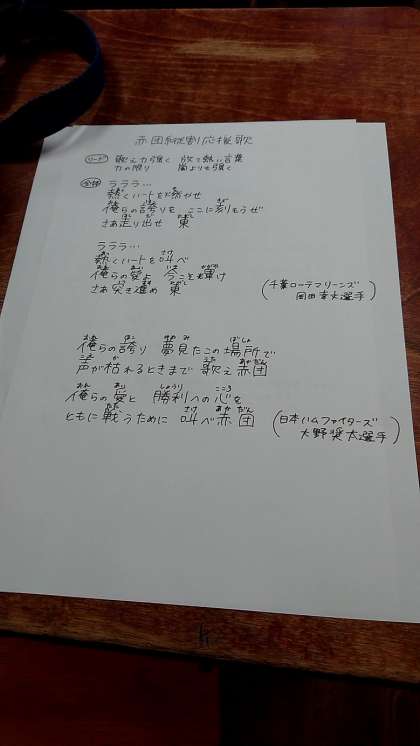 赤団縦割応援歌
リード 歌え力強く 放て熱い言葉
力の限り 嵐よりも強く
全体 ラララ…
熱くハートを燃やせ
俺らの誇りを ここに刻もうぜ
さあ走り出せ 東
ラララ…
熱くハートを叫べ
俺らの愛よ 今こそ輝け
さあ突き進め 東
(千葉ロッテマリーンズ
岡田幸文選手)
俺らの誇り 夢見たこの場所で
声が枯れるときまで 歌え赤団
俺らの愛と 勝利への心を
ともに戦うために 叫べ赤団
(日本ハムファイターズ
大野奨太選手)